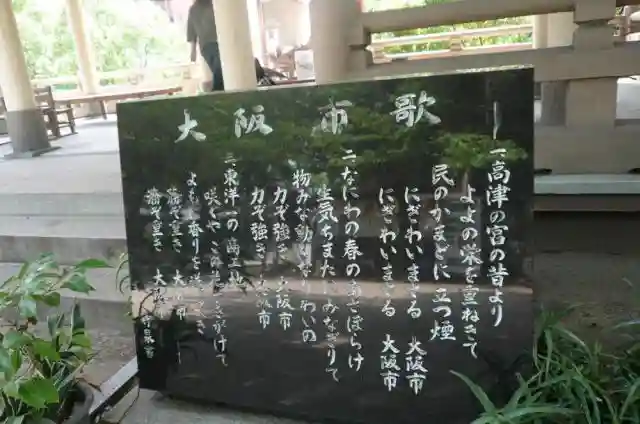 大阪市歌
一 高津の宮の昔より
よよの栄を重ねきて
民のかまどに立つ煙
にぎわいまさる 大阪市
にぎわいまさる 大阪市
二 なにわの春の朝ぼらけ
生気ちまたにみなぎりて
物みな動くなりわいの
力ぞ強き 大阪市
力ぞ強き 大阪市
三 東洋一の商工地
咲くやこの花さきがけて
よもに香りを送るべき
務ぞ重き 大阪市
務ぞ重き 大阪市